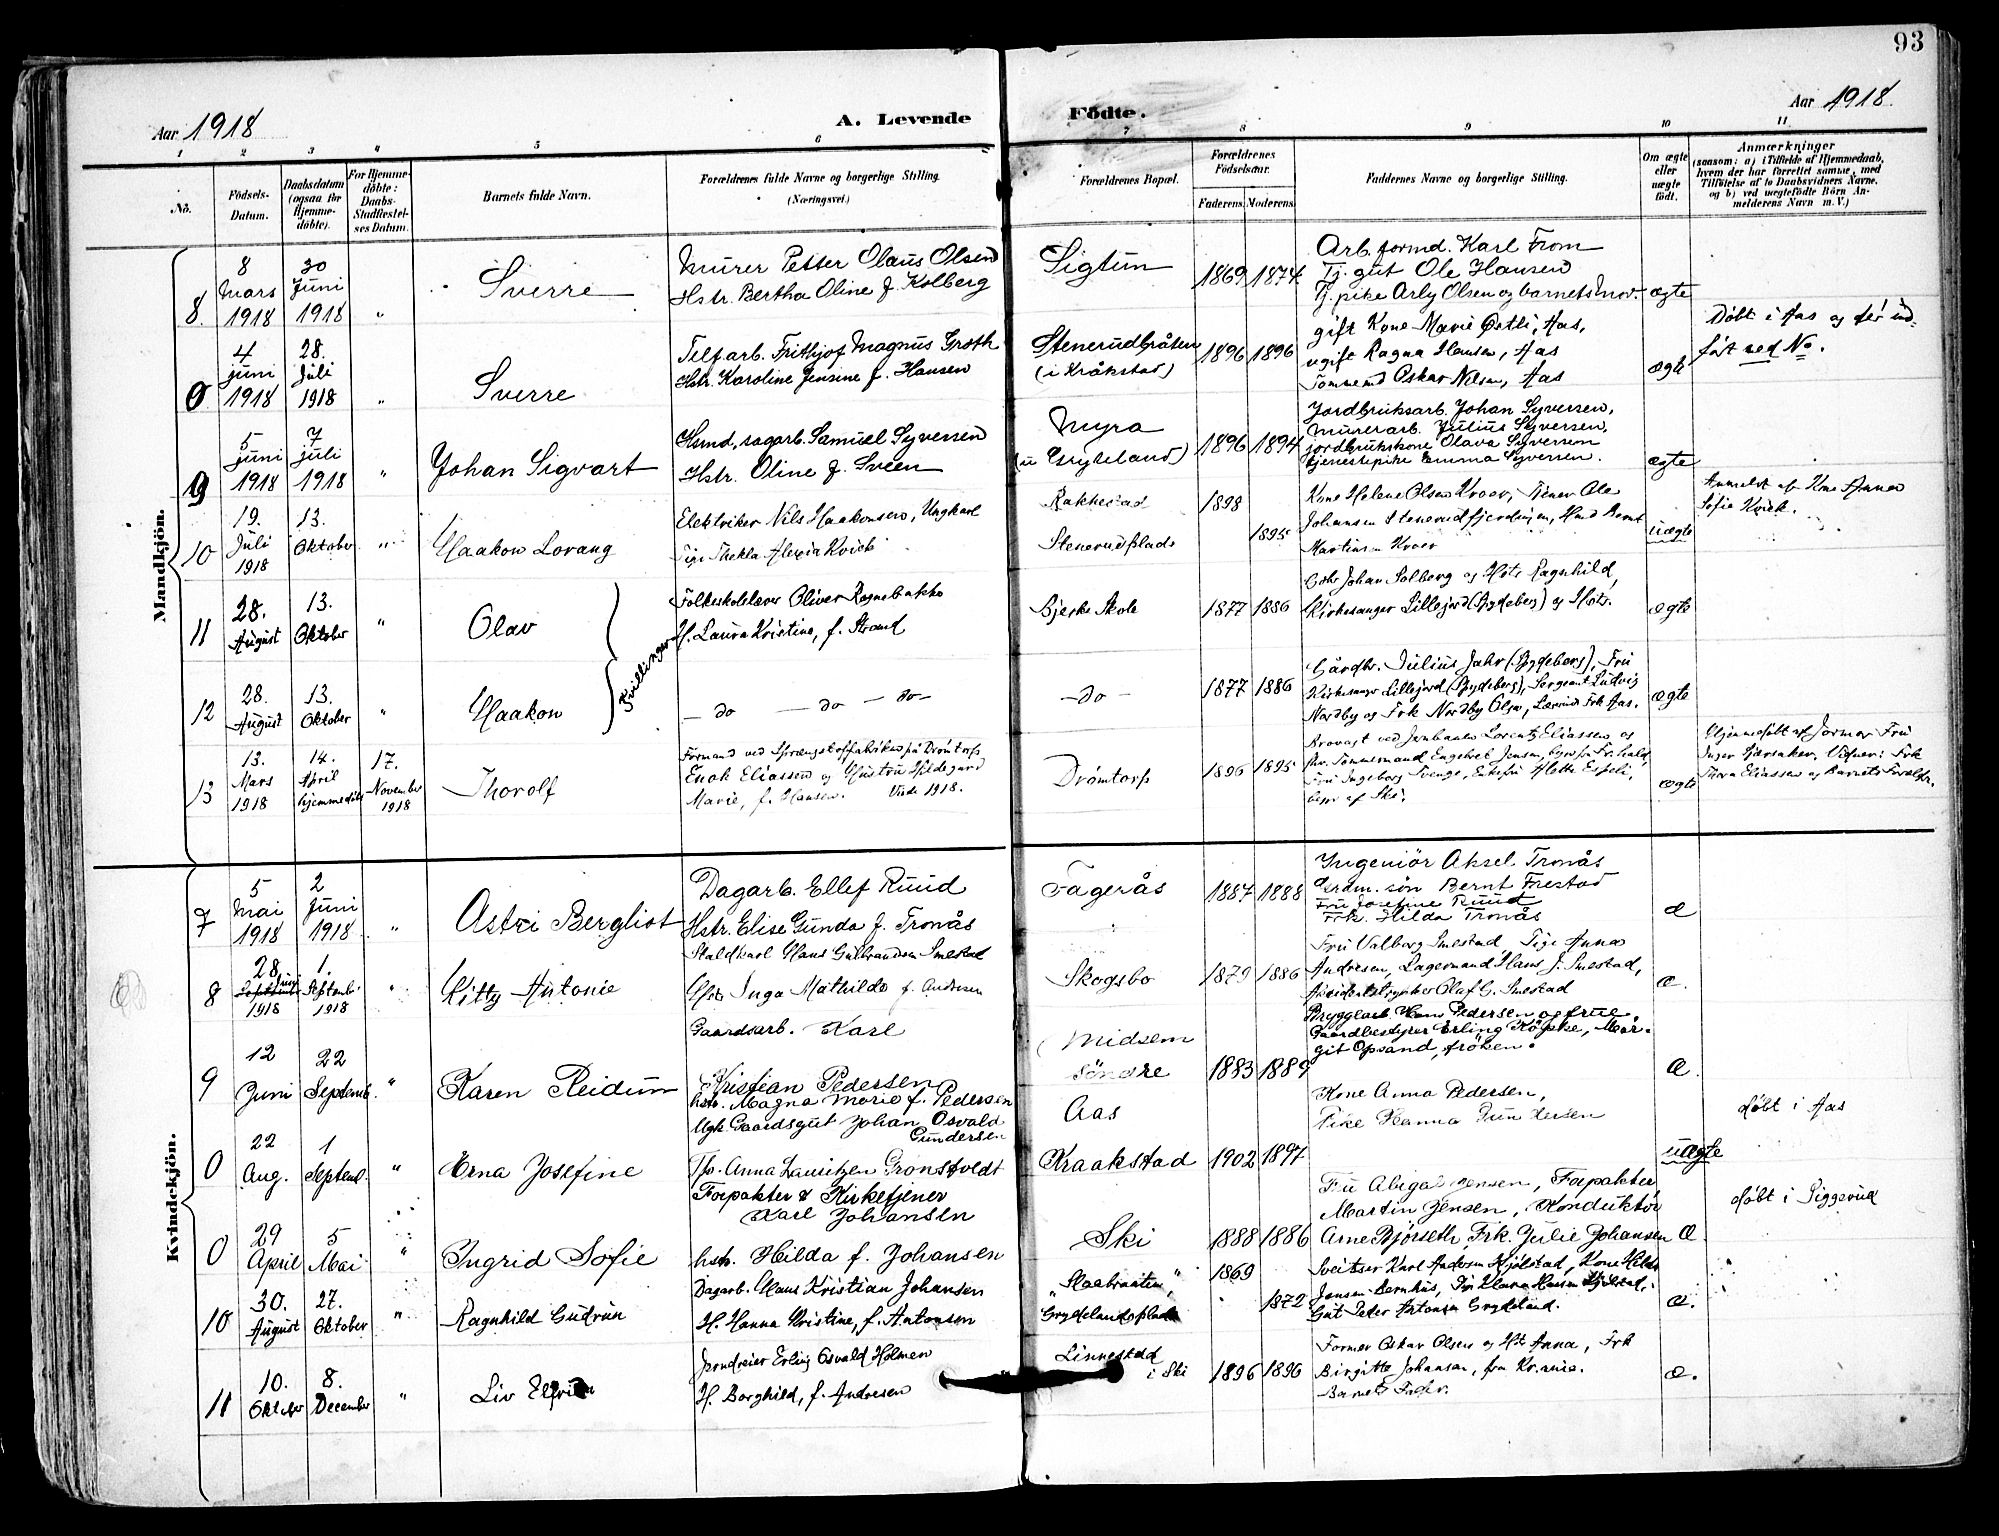 93
Aar 1918
A. Levende
Födte.
Aar 1918.
1 2 3 4 5 6 7 8 9 10 11
No.
Födsels-
Datum.
Daabsdatum
(ogsaa for
Hjemme-
döbte).
For Hjemme-
döbte:
Daabs-
Stadfæstel-
ses Datum.
Barnets fulde Navn.
Forældrenes fulde Navne og borgerlige Stilling.
(Næringsvei.)
Forældrenes Bopæl.
Forældrenes
Födselsaar.
Faderens. Moderens.
Faddernes Navne og borgerlige Stilling.
Om ægte
eller
uægte
födt.
Anmærkninger
(saasom: a) i Tilfælde af Hjemmedaab,
hvem der har forrettet samme, med
Tilföielse af to Daabsvidners Navne,
og b) ved uægtefödte Börn An-
melderens Navn m. V.)
Mandkjön.
8.
8
Mars
1918
30
Juni
1918
"
Sverre
Murer Petter Olaus Olsen
Hstr. Bertha Oline f. Kolberg
Sigtun
1869 1874
Arb.formd. Karl From
Tj. gut Ole Hansen
Tj. pike Arly Olsen og barnets mor.
ægte
0
4
juni
1918
28.
Juli
1918
"
Sverre
Telf.arb. Frithjof Magnus Groth
Hstr. Karoline Jensine f. Hansen
Stenerudbråten
(i Kråkstad)
1896 1896
gift Kone Marie Østli, Aas,
ugift Ragna Hansen, Aas
Tømmermd Oskar Nilsen, Aas
ægte
Døbt i Aas og før ind-
ført ved No.
9
5
juni
1918
7
juli
1918
"
Johan Sigvart
Hsmd, sagarb. Samuel Syversen
Hstr. Oline f. Sveen
Myra
(u Grydeland)
1896 1894
Jordbruksarb. Johan Syversen,
Murerarb. Julius Syversen,
jordbrukskone Olava Syversen
tjenestepike Emma Syversen.
ægte
10
19.
Juli
1918
13.
Oktober
"
Haakon Lorang
Elektriker Nils Haakonsen, Ungkarl
Pige Thekla Alexia Kvick
Rakkestad
Stenerudplads
1898
1895
Kone Helene Olsen Kroer, Tjener Ole
Johansen Stenerudfjerdingen, Hmd Bernt
Martinsen Kroer
uægte
Anmeldt af Kone Anna
Sofie Kvick.
11
28.
August
13.
Oktober
"
Olav
Tvillinger
Folkeskolelærer Oliver Ragnebakke
H. Laura Kristine, f. Strand
Bjerke Skole
1877 1886
Gbr Johan Solberg og Hstr Ragnhild,
Kirkesanger Lillejord (Spydeberg) og Hstr.
ægte
12
28.
August
13.
Oktober
"
Haakon
— do — do — do —
— do —
1877 1886
Gårdbr. Julius Jahr (Spydeberg), Fru
Kirkesanger Lillejord (Spydeberg), Sergeant Ludvig
Nordby og Frk Nordby Olsen, Lærerinde Frk Aas.
ægte
13
13.
Mars
1918
14.
April
hjemmedøbt
17.
November
1918
Thorolf
Formand ved Sprængstoffabriken på Drömtorp
Enok Eliassen og Hustru Hildegard
Marie, f. Hansen. Viede 1918.
Drömtorp
1896 1895
Brovagt ved Jernbanen Lorentz Eliassen og
Fru, Tømmermand Engebret Jensen,
Fru Ingeborg Svenge, Enkefru Mette Espeli,
begge af Ski.
ægte
Hjemmedøbt af Jormor Fru
Vidner: Frk
Thora Eliassen og Barnets Forældre.
Kvindekjön.
7
5
Mai
1918
2
Juni
1918
"
Astri Bergliot
Dagarb. Ellef Ruud
Hstr. Elise Gunda f. Tronås
Fagerås
1887 1888
Ingeniör Aksel Tronås
Grdm. sön Bernt Frestad
Fru Josefine Ruud
Frk. Hilda Tronås
æ
8
28
juni
1918
1.
Septemb.
1918
"
Kitty Antonie
Staldkarl Hans Gulbrandsen Smestad
Hstr Inga Mathilde f. Andresen
Skogsbo
1879 1886
Fru Valborg Smestad, Pige Anna
Andresen, Lagermand Hans J. Smestad,
Accidentstrykker Olaf G. Smestad
æ.
9
12
Juni
22
Septemb.
"
Karen Reidun
Gaardsarb. Karl
Kristian Pedersen
hstr. Magna Marie f. Pedersen
Midsem
söndre
Aas
1883 1889
Bryggearb. Hans Pedersen og frue,
Gaardbestyrer Erling Köpke, Mar-
git Opsand, fröken.
æ.
0
22
Aug.
1
Septemb.
"
Erna Josefine
Ugk. Gaardsgut Johan Osvald
Gundersen
Tp. Anna Lauritzen Gronstvedt
Kraakstad
1902 1897
Kone Anna Pedersen,
Pike Hanna Gundersen
uægte
døbt i Aas
0
29
April
5
Mai
"
Ingrid Sofie
Forpakter & Kirketjener
Karl Johansen
hstr. Hilda f. Johansen
Ski
1888 1886
Fru Abigal Jensen, Forpakter
Martin Jensen, Konduktör
Arne Bjørseth, Frk. Julie Johansen
æ.
døbt i Siggerud
10
30.
August
27.
Oktober
"
Ragnhild Gudrun
Dagarb. Hans Kristian Johansen
H. Hanna Kristine, f. Antonsen
"Haabraaten",
Grydelandsplads
1869
1872
Sveitser Karl Andersen Kjølstad, Kone Hilda
Jensen Bernhus, Pige Klara Hansen Kjølstad,
Gut Peter Antonsen Grydeland.
æ.
11
10.
Oktober
8.
December
"
Liv Elfrida
Jordeier Erling Osvald Holmen
H. Borghild, f. Andresen
Linnestad
i Ski
1896 1896
Former Oskar Olsen og Hst Anna, Frk
Birgitte Johansen, fra Kr.ania.
Barnets Fader.
æ.